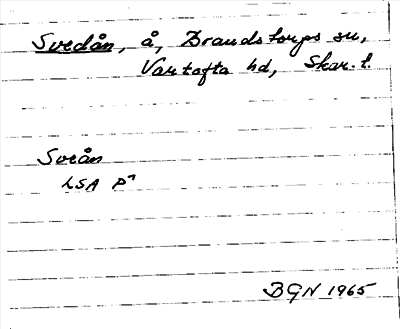 Svedån, å, Brandstorps sn,
Vartofta hd, Skar. l.
Sveån
LSA P⁷
BGN 1965